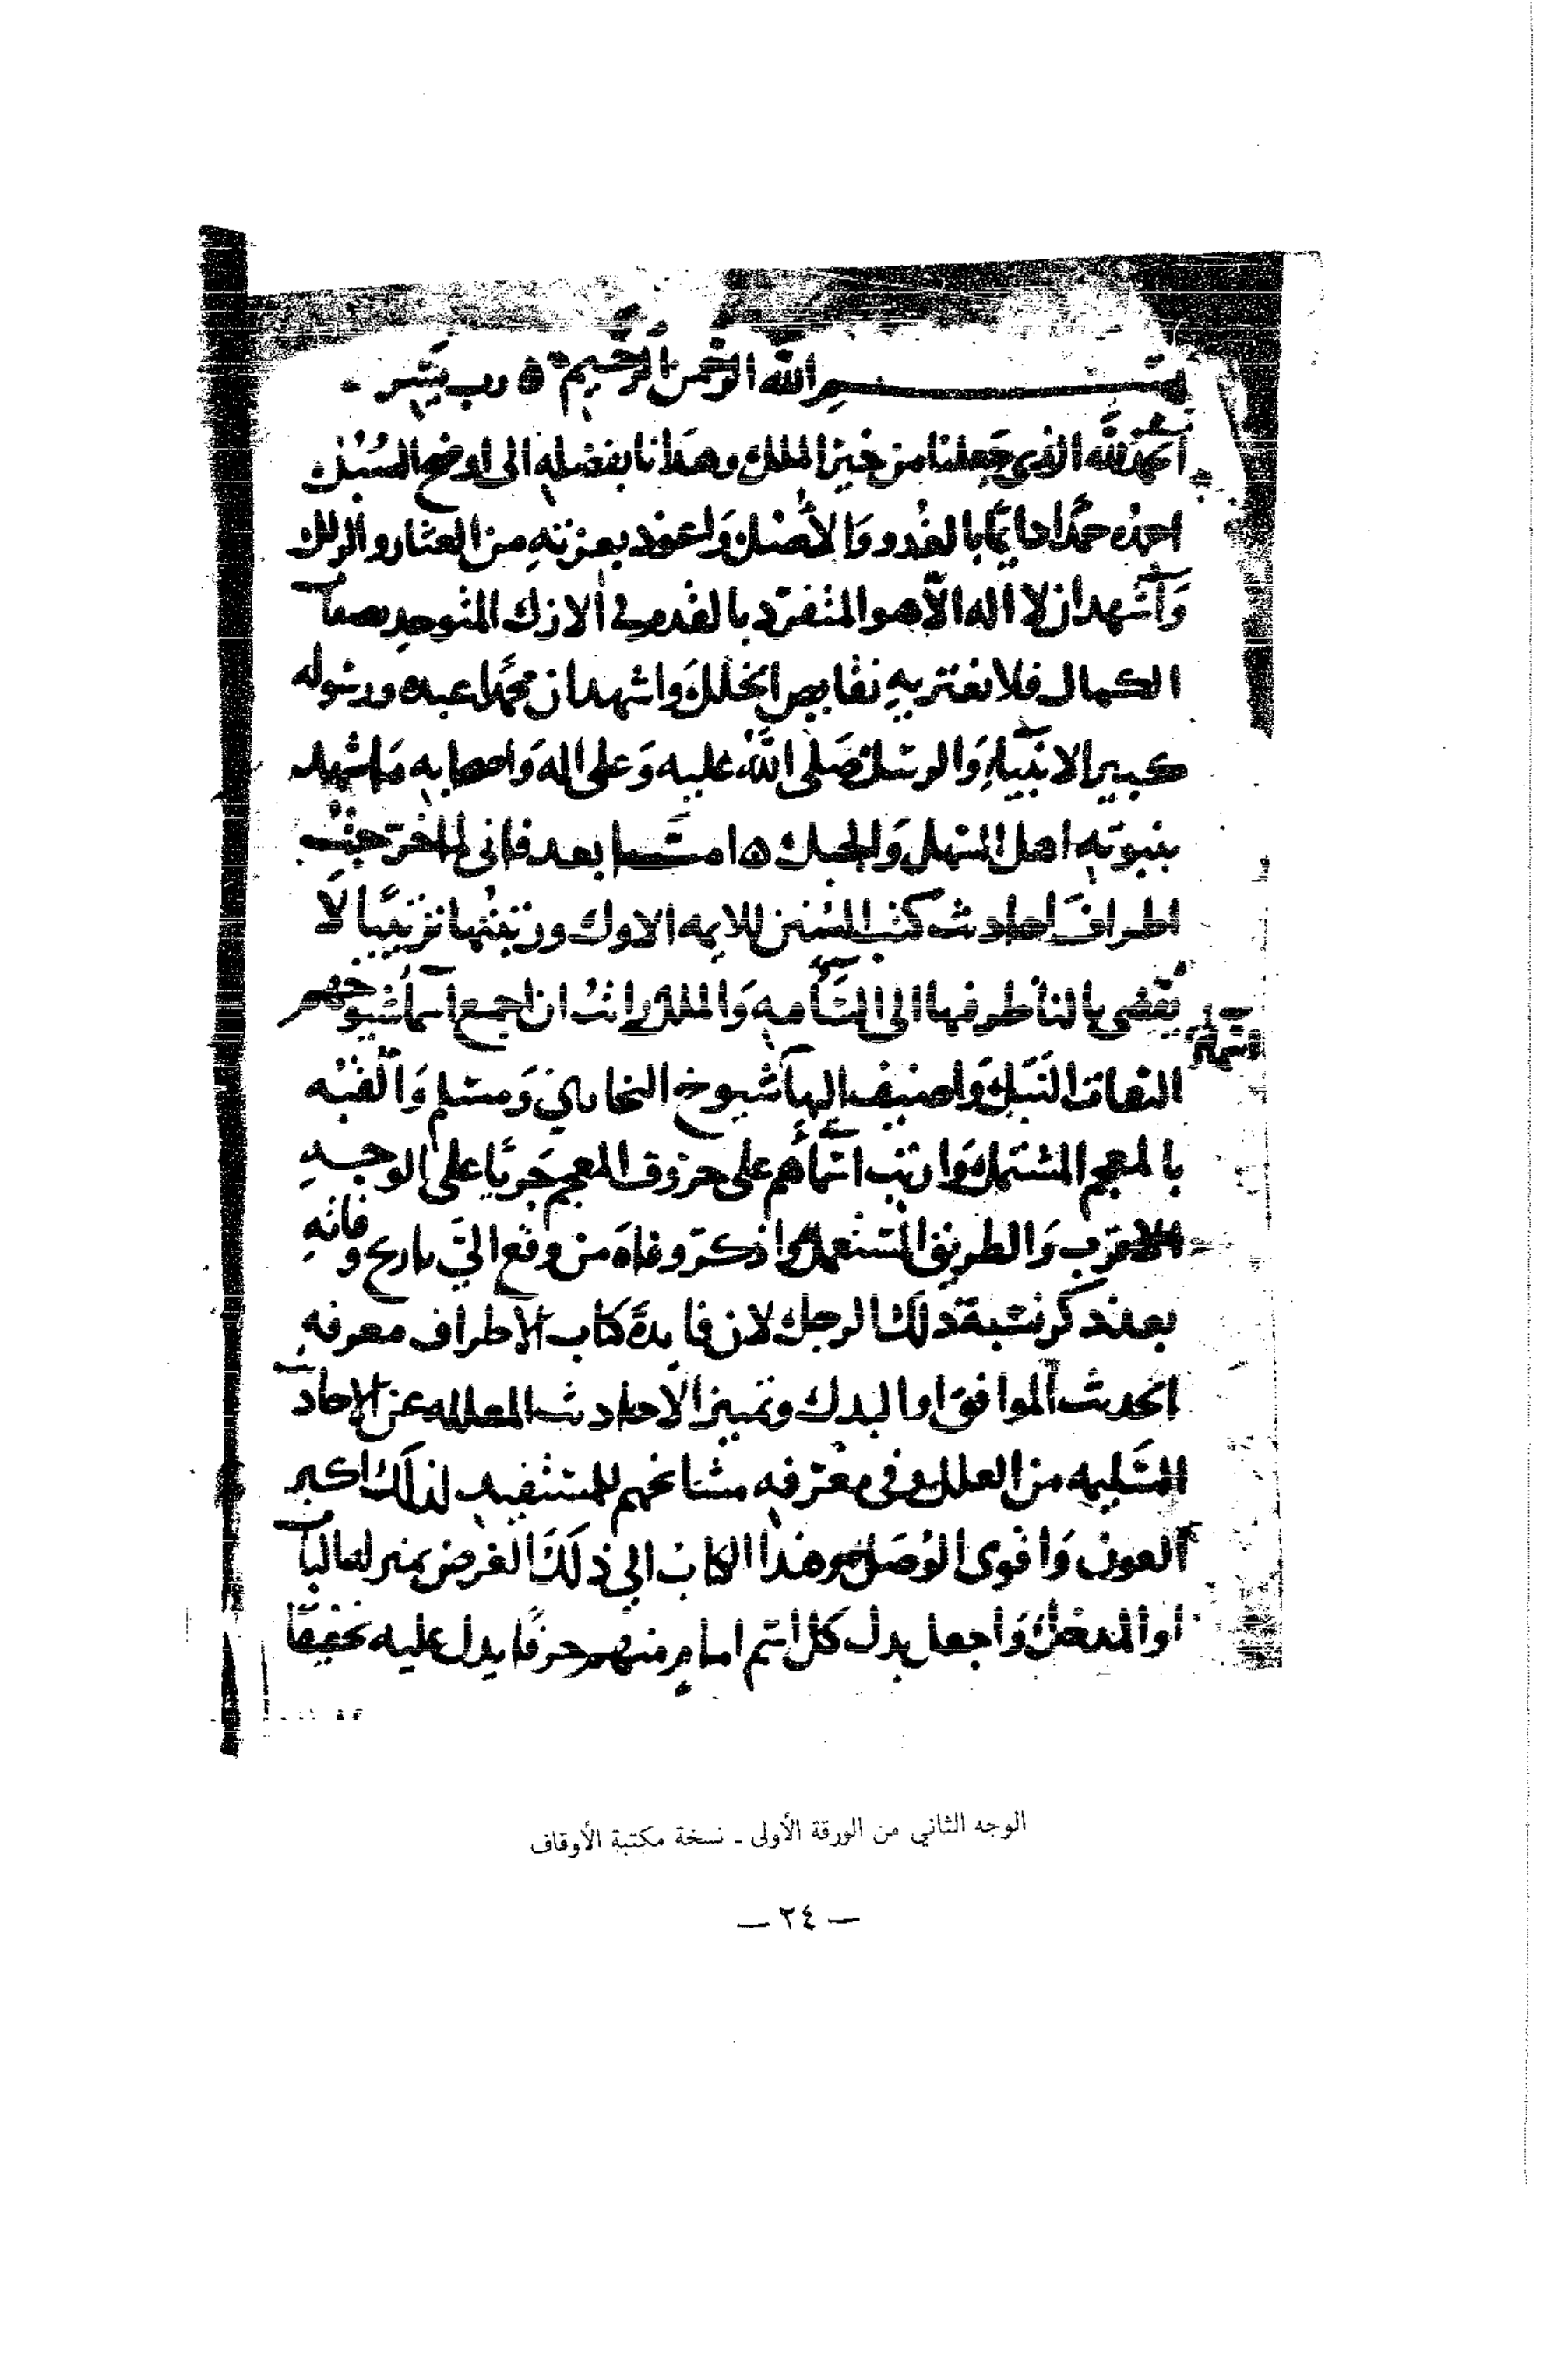 بسم الله الرحمن الرحيم ه رب يسر
الحمد لله الذي جعلنا من خير الملل وهدانا بفضله الى اوضح السبل
احمده حمدا دايما بالغدو والأصل واعوذ بعزته من العثار والزلل
وأشهد ان لا اله الا هو المتفرد بالقدم في الازل المتوحد بصفات
الكمال فلا تعتريه نقايص الخلل واشهد ان محمدا عبده ورسوله
كبير الانبياء والرسل صلى الله عليه وعلى اله واصحابه ما شهد
بنبوته اهل السهل والجبل ه اما بعد فاني لما خرجت
اطراف احاديث كتب السنن للايمه الاول ورتبتها ترتيبا لا
يفضي بالناظر فيها الى السآمه والملل رايت ان اجمع اسما شيوخهم
الثقات النبل واضيف اليها شيوخ البخاري ومسلم والقبه
بالمعجم المشتمل وارتب اسماهم على حروف المعجم جريا على الوجه
الاقرب والطريق المستعمل واذكر وفاة من وقع الي تاريخ وفاته
بعد ذكر نسبة ذلك الرجل لان فايدة كتاب الاطراف معرفه
الحديث الموافق او البدل وتمييز الاحاديث المعلله عن الاحاديث
السليمه من العلل وفي معرفه مشايخهم للمستفيد لذلك اكبر
العون واقوى الوصل وهذا الكتاب الي ذلك الغرض بمنزله الباب
او المدخل واجعل بدل كل اسم امام منهم حرفا يدل عليه تخفيفا
الوجه الثاني من الورقة الأولى - نسخة مكتبة الأوقاف
— ٢٤ —